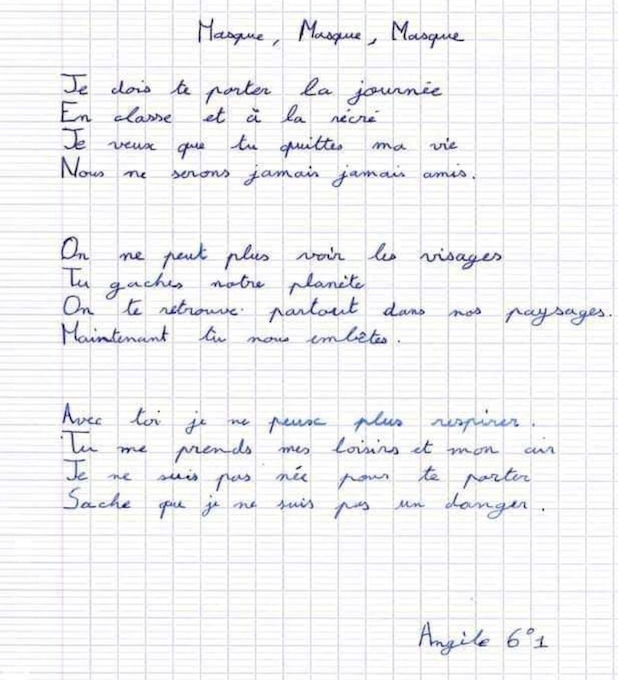 Masque, Masque, Masque
Je dois te porter la journée
En classe et à la récré
Je veux que tu quittes ma vie
Nous ne serons jamais jamais amis.
On ne peut plus voir les visages
Tu gaches notre planète
On te retrouve partout dans nos paysages.
Maintenant tu nous embêtes.
Avec toi je ne peux plus respirer.
Tu me prends mes loisirs et mon air
Je ne suis pas née pour te porter
Sache que je ne suis pas un danger.
Angèle 6°1